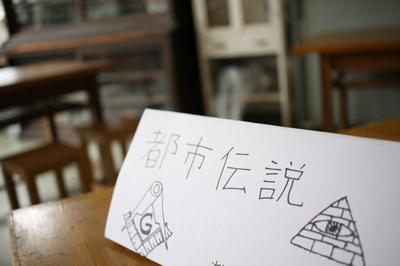 都市伝説
G